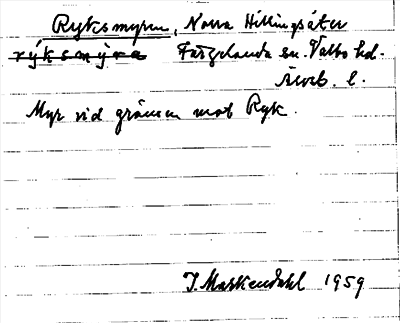 Ryksmyren, Norra Hillingsäter
rýksmýra Färgelanda sn. Valbo hd.
Älvsb. l.
Myr vid gränsen mot Ryk.
J. Markendahl 1959